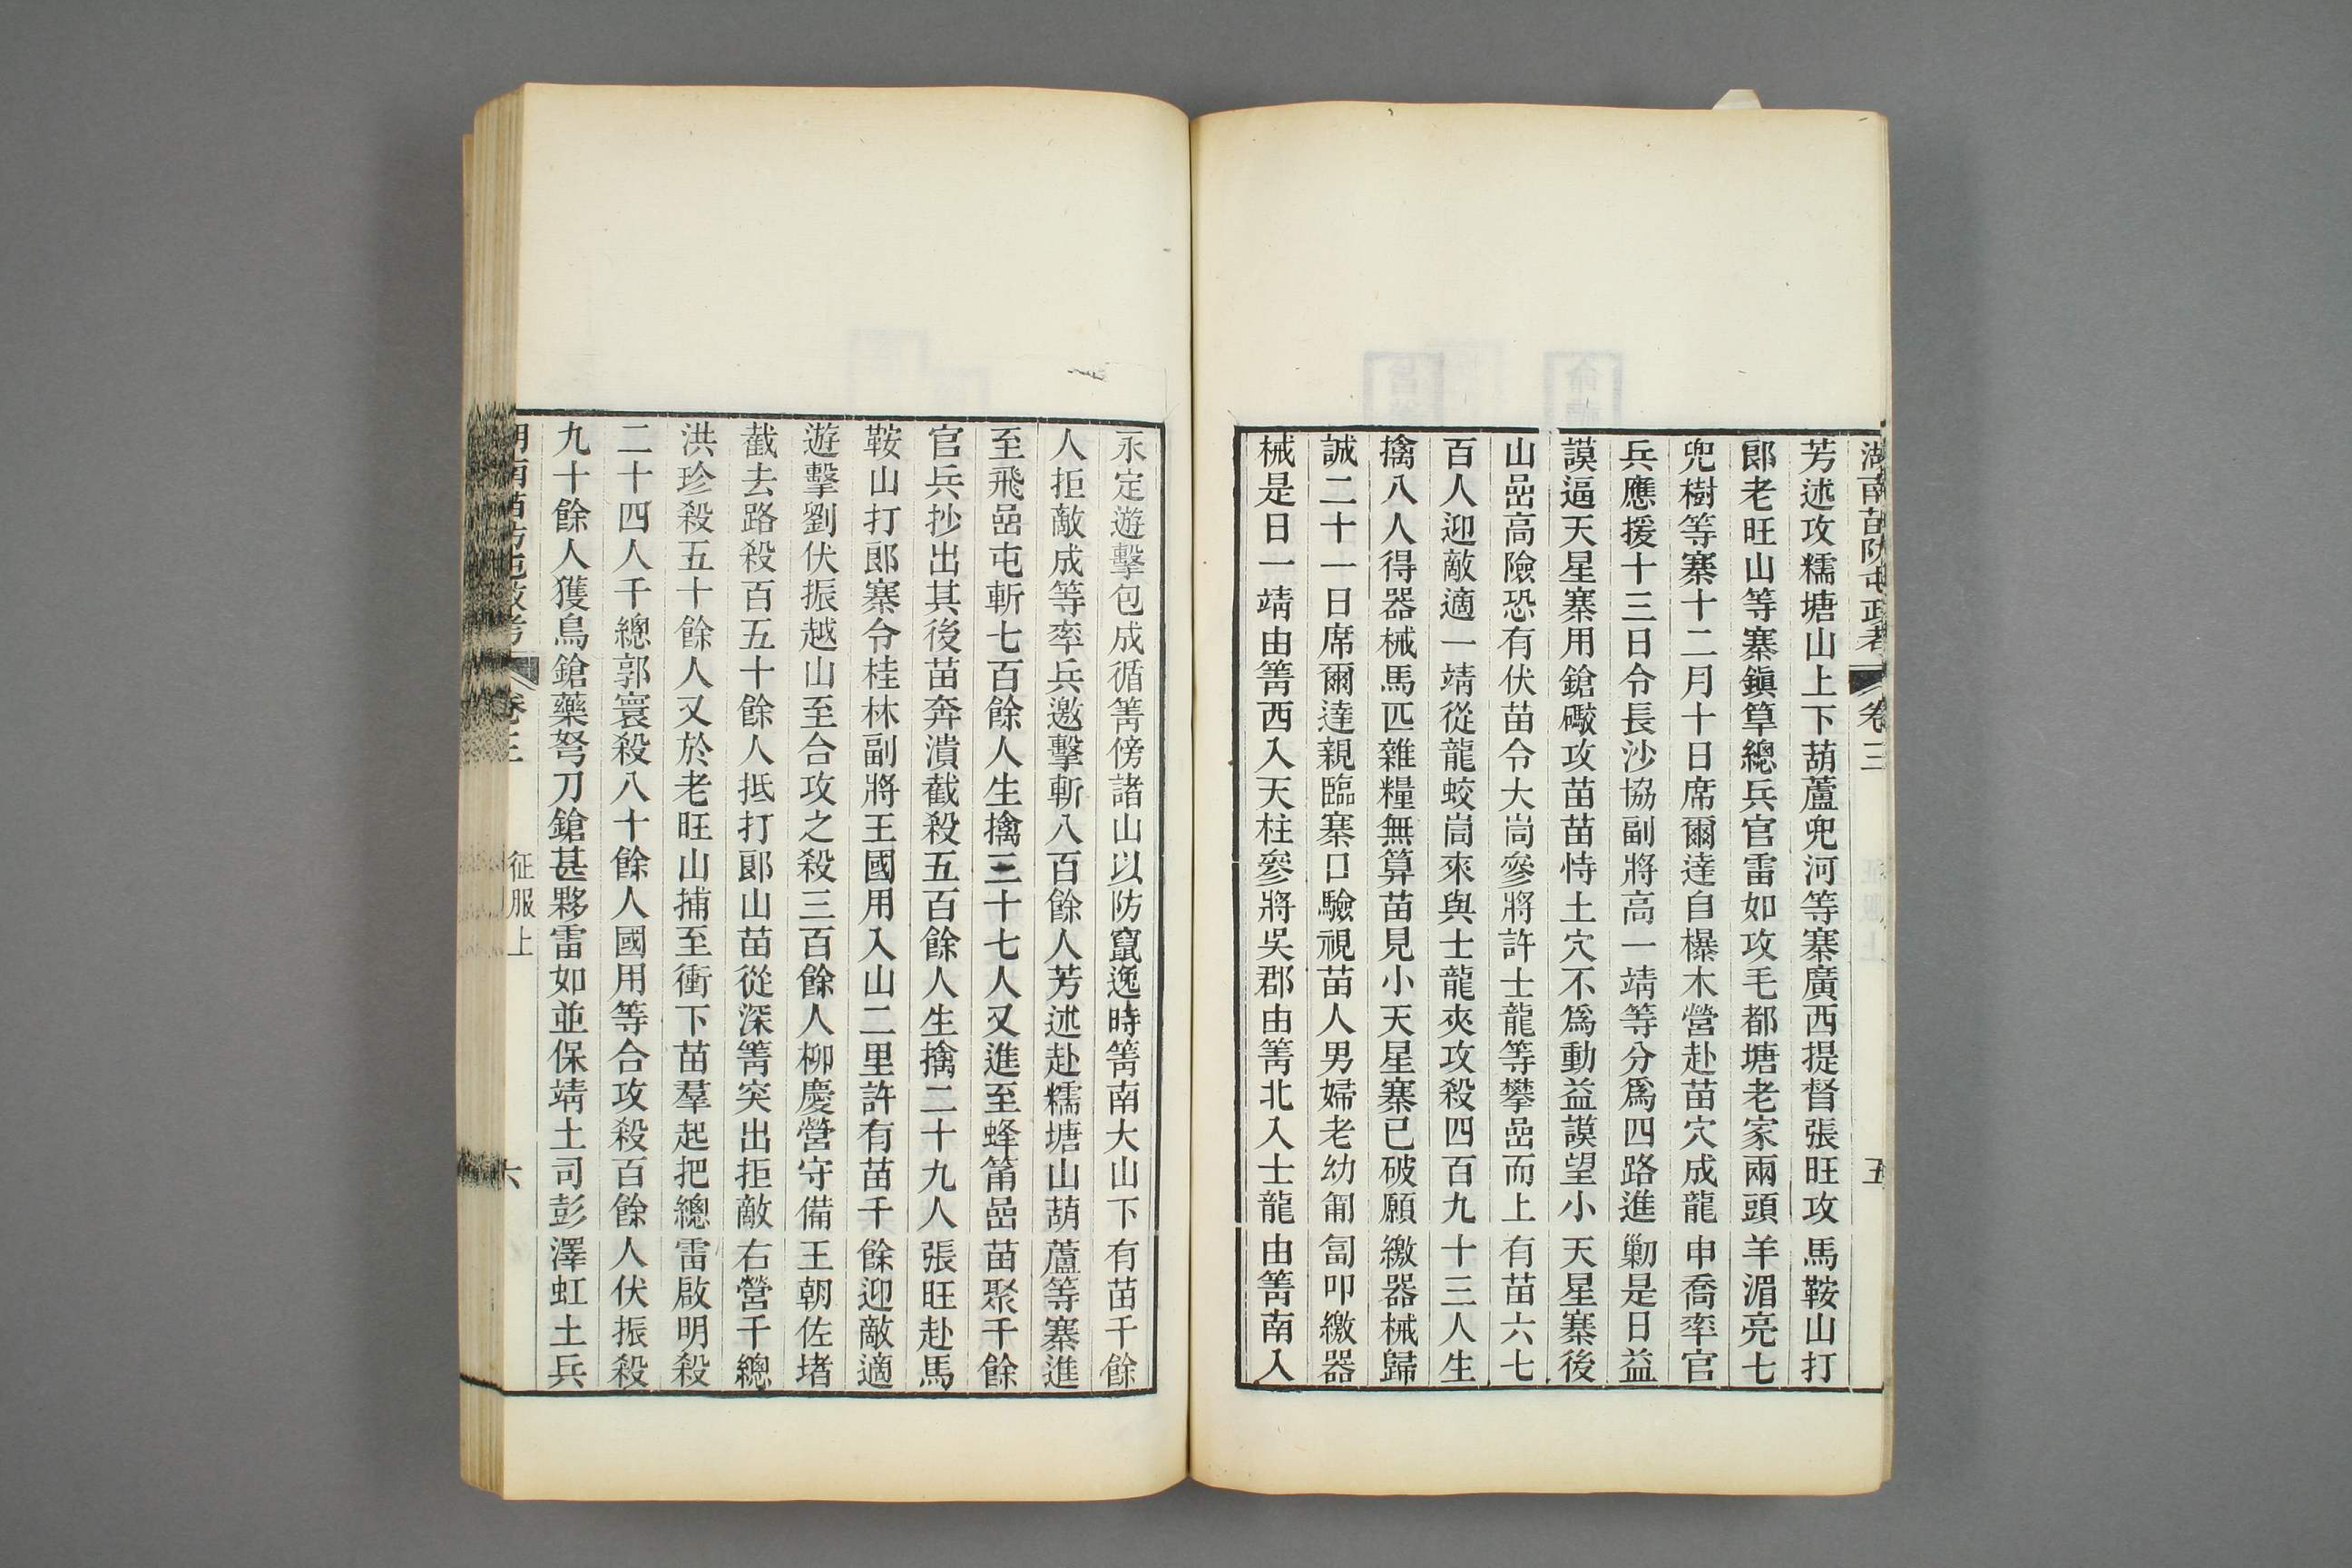 湖南苗防屯政考 卷三 五
芳述攻糯塘山上下葫蘆兜河等寨廣西提督張旺攻馬鞍山打
郎老旺山等寨鎭筸總兵官雷如攻毛都塘老家兩頭羊湄亮七
兜樹等寨十二月十日席爾達自㯷木營赴苗穴成龍申喬率官
兵應援十三日令長沙協副將高一靖等分爲四路進剿是日益
謨逼天星寨用鎗礮攻苗苗恃土穴不爲動益謨望小天星寨後
山嵒高險恐有伏苗令大尚參將許士龍等攀嵒而上有苗六七
百人迎敵適一靖從龍蛟尚來與士龍夾攻殺四百九十三人生
擒八人得器械馬匹雜糧無算苗見小天星寨已破願繳器械歸
誠二十一日席爾達親臨寨口驗視苗人男婦老幼匍匐叩繳器
械是日一靖由箐西入天柱參將吳郡由箐北入士龍由箐南入
永定遊擊包成循箐傍諸山以防竄逸時箐南大山下有苗千餘
人拒敵成等率兵邀擊斬八百餘人芳述赴糯塘山葫蘆等寨進
至飛嵒屯斬七百餘人生擒三十七人又進至蜂筩嵒苗聚千餘
官兵抄出其後苗奔潰截殺五百餘人生擒二十九人張旺赴馬
鞍山打郎寨令桂林副將王國用入山二里許有苗千餘迎敵適
遊擊劉伏振越山至合攻之殺三百餘人柳慶營守備王朝佐堵
截去路殺百五十餘人抵打郎山苗從深箐突出拒敵右營千總
洪珍殺五十餘人又於老旺山捕至衝下苗羣起把總雷啟明殺
二十四人千總郭寰殺八十餘人國用等合攻殺百餘人伏振殺
九十餘人獲鳥鎗藥弩刀鎗甚夥雷如並保靖土司彭澤虹土兵
湖南苗防屯政考 卷三 征服上 六